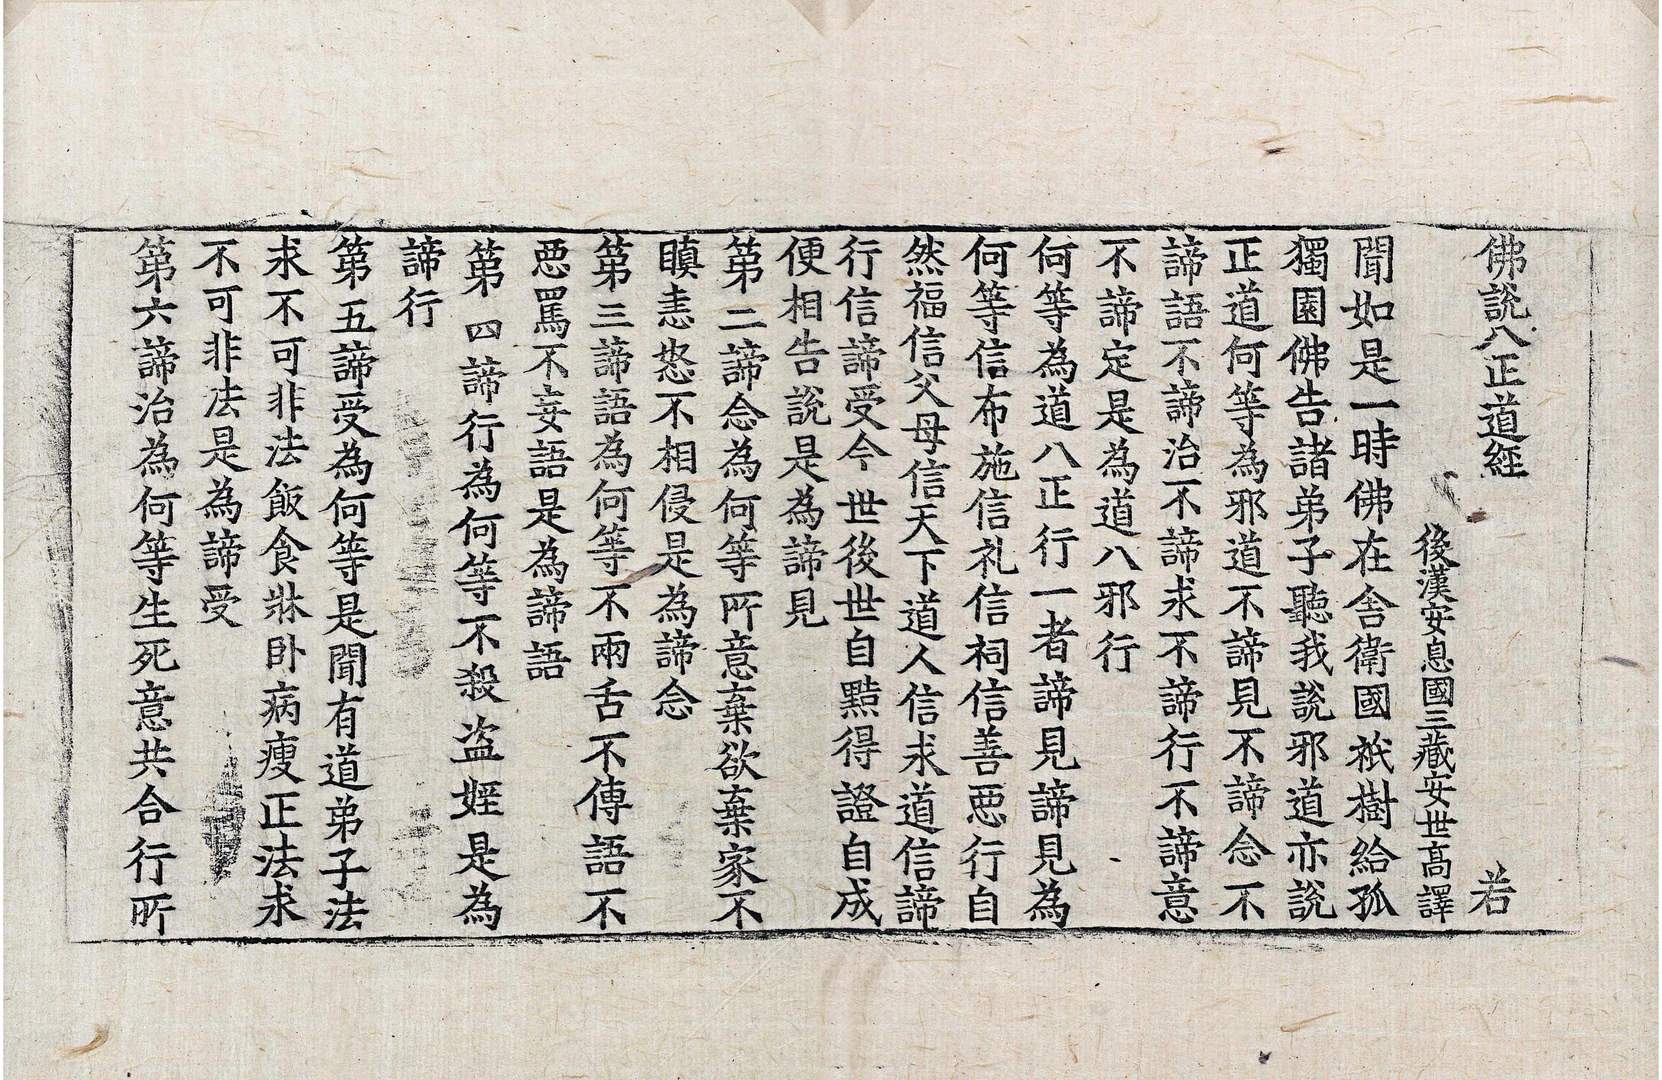 佛說八正道經 若
後漢安息國三藏安世高譯
聞如是一時佛在舍衛國祇樹給孤
獨園佛告諸弟子聽我說邪道亦說
正道何等為邪道不諦見不諦念不
諦語不諦治不諦求不諦行不諦意
不諦定是為道八邪行
何等為道八正行一者諦見諦見為
何等信布施信礼信祠信善惡行自
然福信父母信天下道人信求道信諦
行信諦受今世後世自黠得證自成
便相告說是為諦見
第二諦念為何等所意棄欲棄家不
瞋恚怒不相侵是為諦念
第三諦語為何等不兩舌不傳語不
惡罵不妄語是為諦語
第四諦行為何等不殺盜婬是為
諦行
第五諦受為何等是聞有道弟子法
求不可非法飯食牀卧病瘦正法求
不可非法是為諦受
第六諦治為何等生死意共合行所